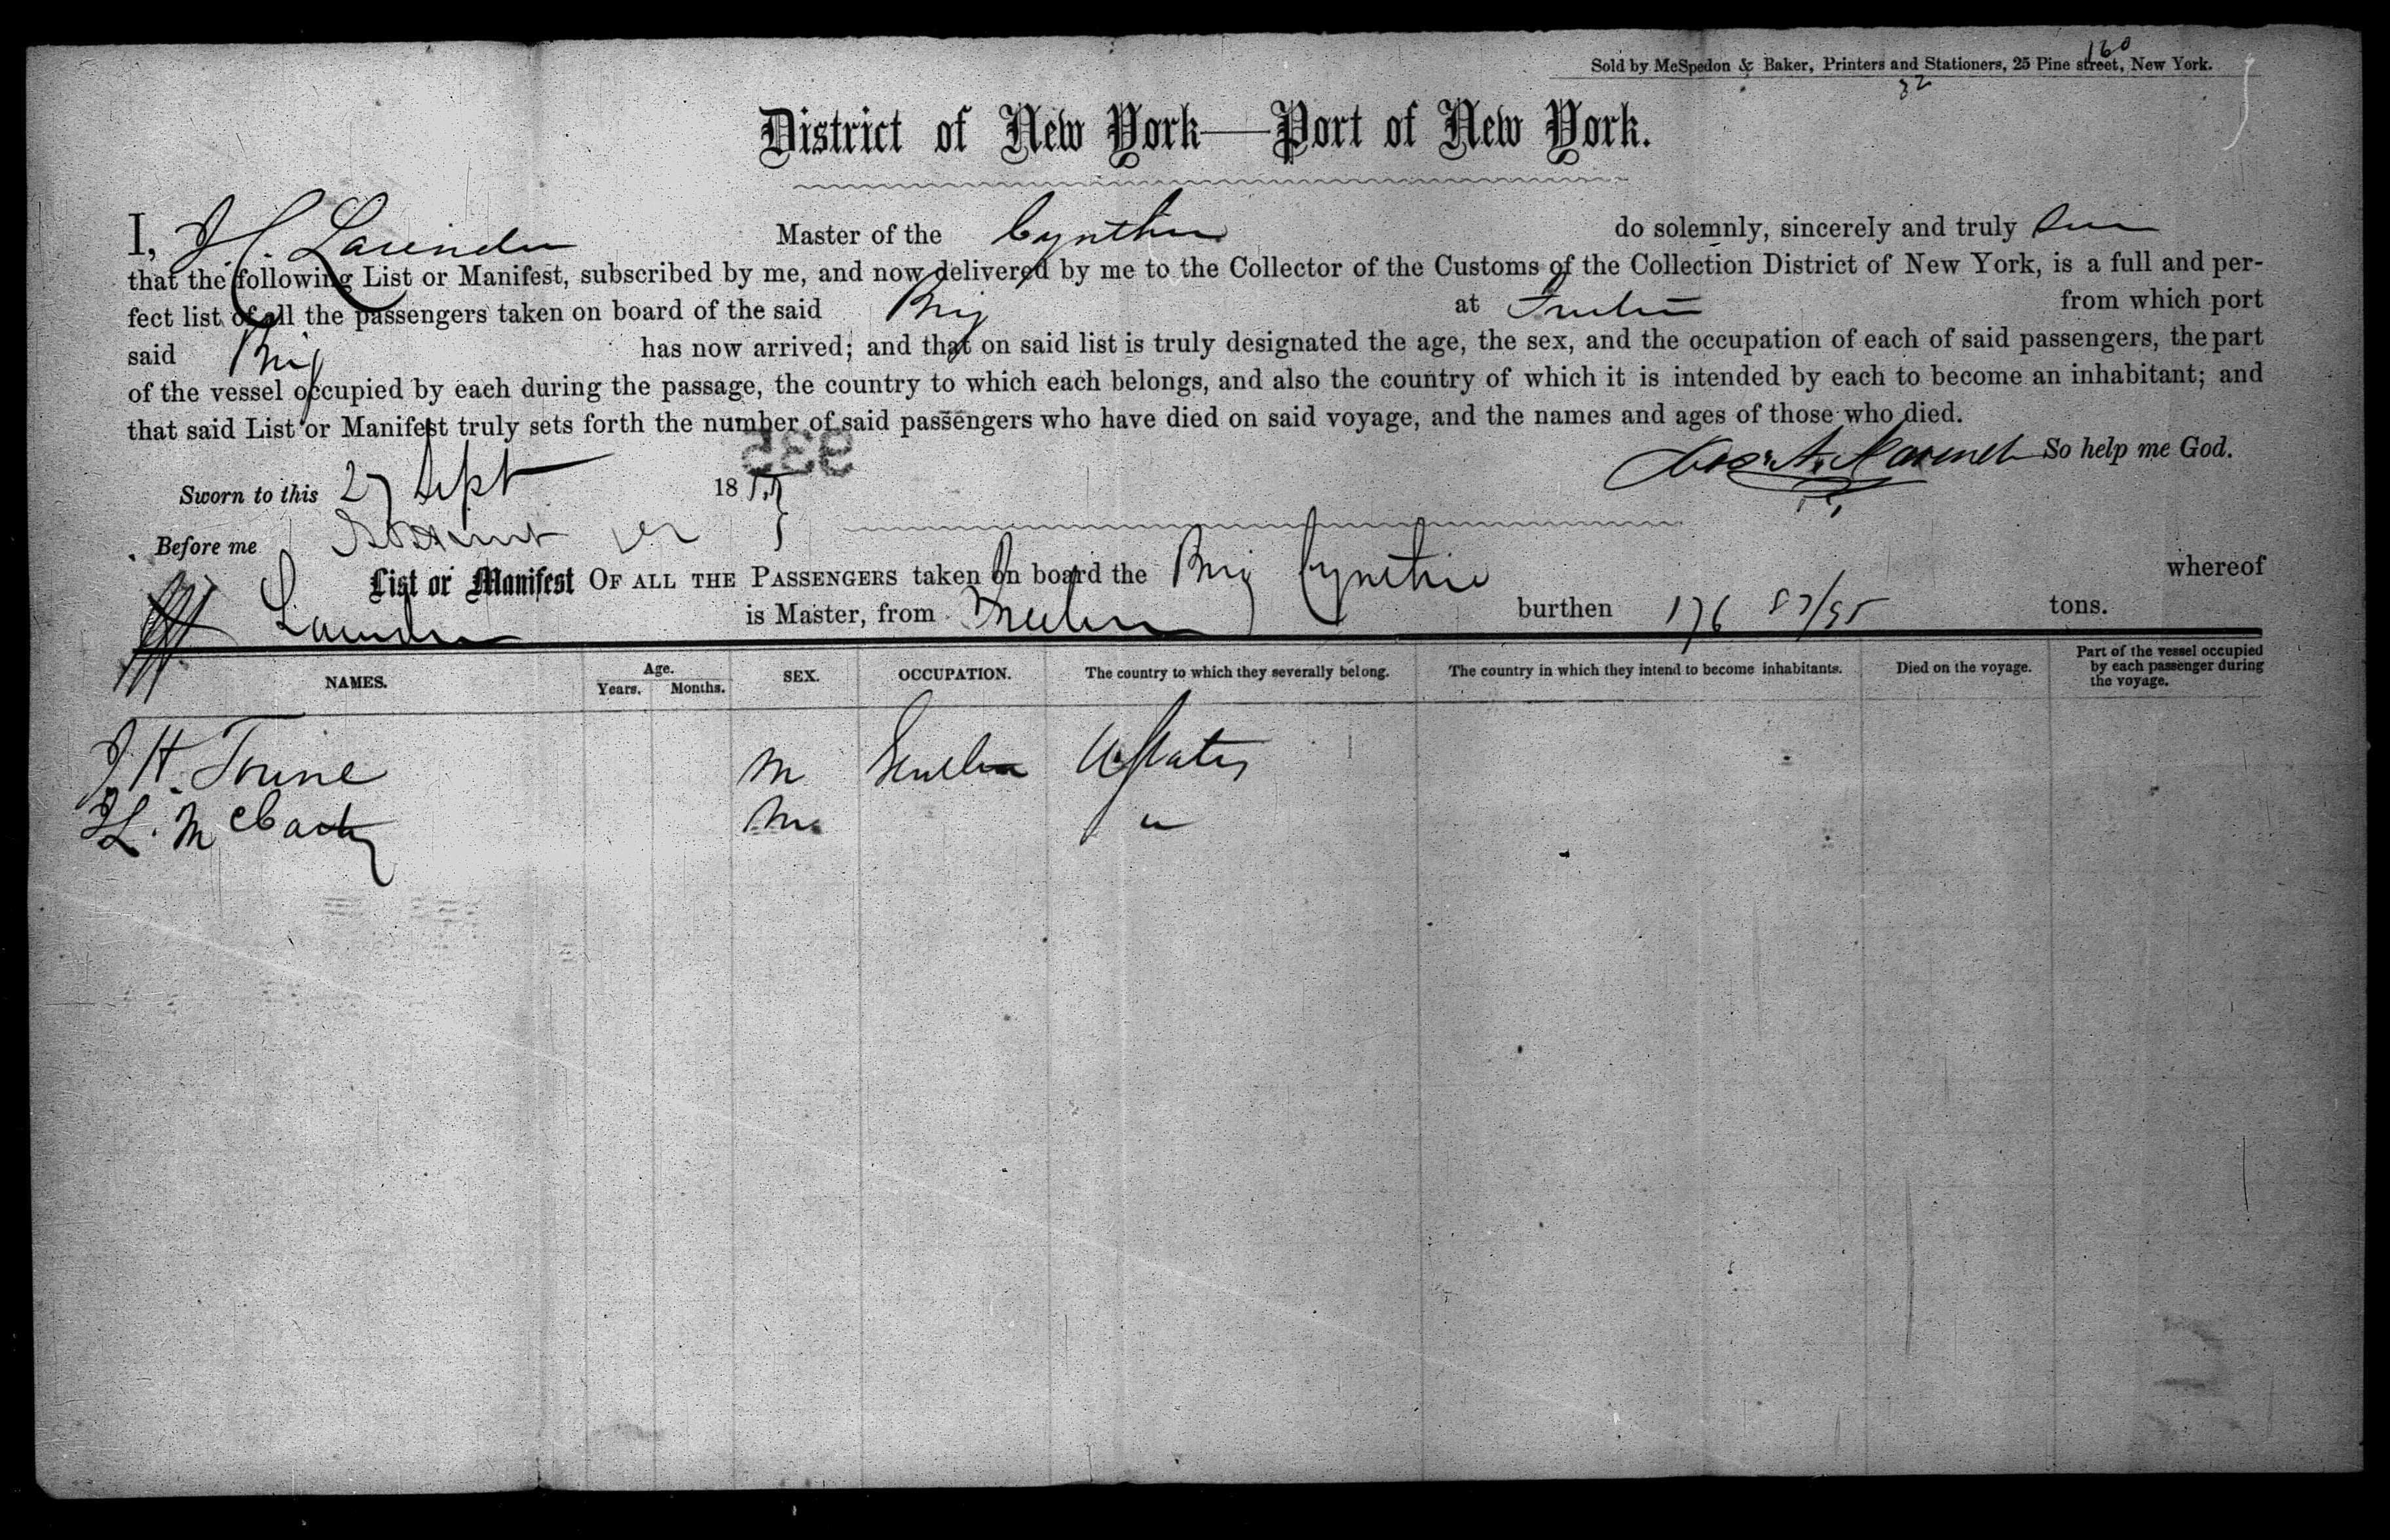 160
Sold by McSpedon & Baker, Printers and Stationers, 25 Pine street, New York.
32
District of New York—Port of New York.
I, Master of the Cynthia do solemnly, sincerely and truly
that the following List or Manifest, subscribed by me, and now delivered by me to the Collector of the Customs of the Collection District of New York, is a full and per-
fect list of all the passengers taken on board of the said Brig at from which port
said Brig has now arrived; and that on said list is truly designated the age, the sex, and the occupation of each of said passengers, the part
of the vessel occupied by each during the passage, the country to which each belongs, and also the country of which it is intended by each to become an inhabitant; and
that said List or Manifest truly sets forth the number of said passengers who have died on said voyage, and the names and ages of those who died.
935
So help me God.
Sworn to this 27 Sept 18
Before me
List or Manifest OF ALL THE PASSENGERS taken on board the Brig Cynthia whereof
is Master, from burthen 176 87/95 tons.
NAMES. Age. Years. Months. SEX. OCCUPATION. The country to which they severally belong. The country in which they intend to become inhabitants. Died on the voyage. Part of the vessel occupied by each passenger during the voyage.
J. H. M UStates
McCarty M "